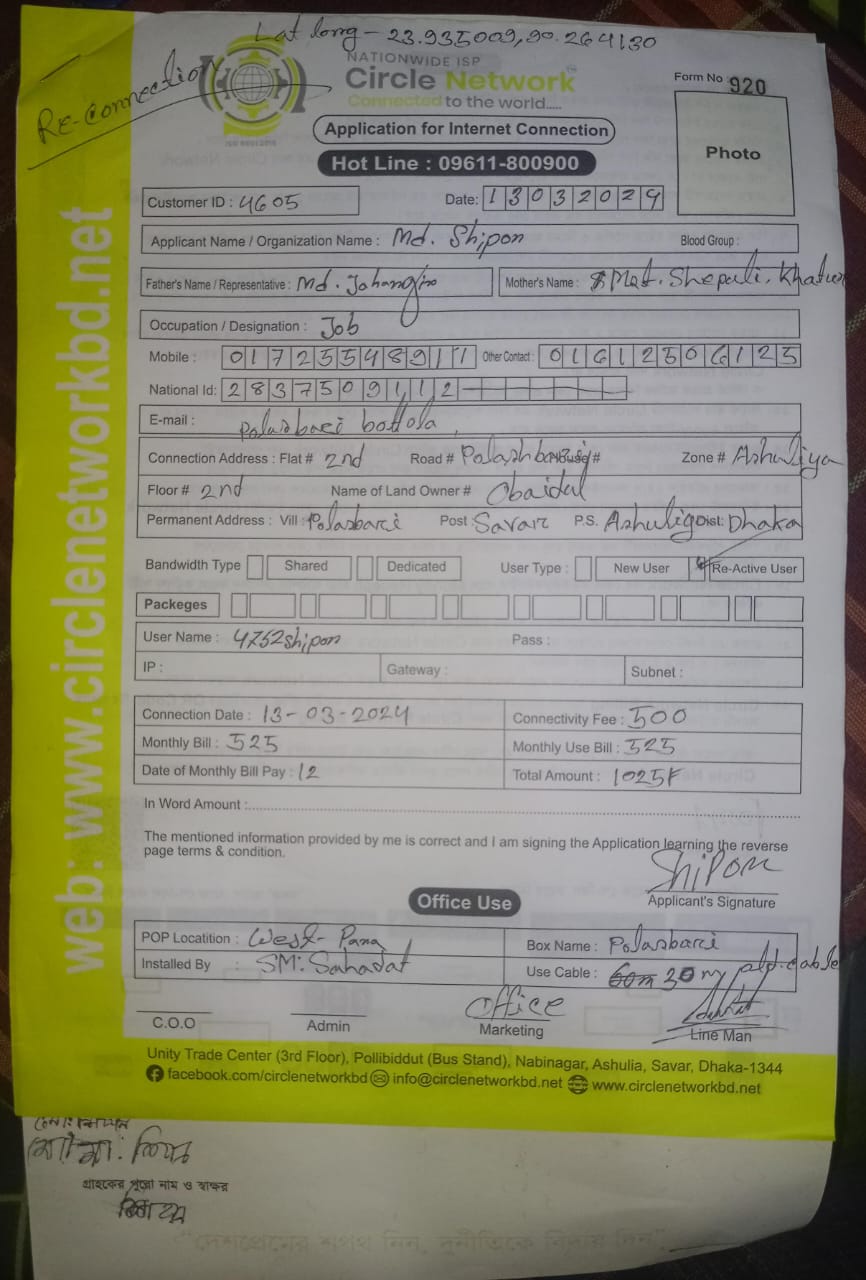 Lat long - 23.935009,90.264130
Re-Connection
NATIONWIDE ISP
Circle Network
Connected to the world.....
Form No 920
Application for Internet Connection
Photo
Hot Line : 09611-800900
Customer ID : 4605
Date: 13032024
Applicant Name / Organization Name : Md. Shipon Blood Group :
Father's Name / Representative : Md. Jahangir Mother's Name : Mst. Shepali. Khatun
Occupation / Designation : Job
Mobile : 01725548911 Other Contact : 01612506125
National Id: 2837509112
E-mail : Polasbari bottola,
Connection Address : Flat # 2nd Road # Polashbari # Zone # Ashuliya
Floor # 2nd Name of Land Owner # Obaidul
Permanent Address : Vill : Polasbari Post : Savar P.S. Ashulia Dist: Dhaka
Bandwidth Type Shared Dedicated User Type : New User Re-Active User
Packeges
User Name : 4752shipon Pass :
IP : Gateway : Subnet :
Connection Date : 13-03-2024 Connectivity Fee : 500
Monthly Bill : 525 Monthly Use Bill : 525
Date of Monthly Bill Pay : 12 Total Amount : 1025
In Word Amount :
The mentioned information provided by me is correct and I am signing the Application learning the reverse
page terms & condition.
Shipon
Applicant's Signature
Office Use
POP Locatition : West-Para Box Name : Polasbari
Installed By : SM: Sahadat Use Cable : 30m old cable
Office
C.O.O Admin Marketing Line Man
Unity Trade Center (3rd Floor), Pollibiddut (Bus Stand), Nabinagar, Ashulia, Savar, Dhaka-1344
facebook.com/circlenetworkbd info@circlenetworkbd.net www.circlenetworkbd.net
web: www.circlenetworkbd.net
গ্রাহকের পুরো নাম ও স্বাক্ষর
"দেশপ্রেমের শপথ নিন, দুর্নীতিকে বিদায় দিন"